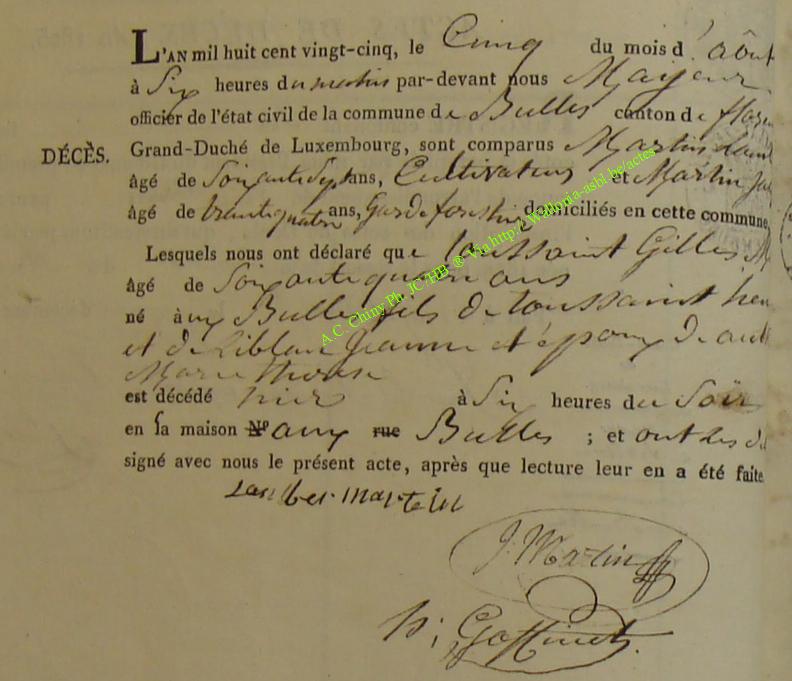 L'AN mil huit cent vingt-cinq, le Cinq du mois d'août
à Six heures du matin par-devant nous Mayeur
officier de l'état civil de la commune de Bulles canton de flore
DÉCÈS. Grand-Duché de Luxembourg, sont comparus Martin Lam
âgé de Soixante Sept ans, Cultivateur et Martin Ja
âgé de trente quatre ans, Garde forestier domiciliés en cette commune
Lesquels nous ont déclaré que toussaint Gilles
âgé de Soixante quatre ans
né à aux Bulles fils de toussaint hen
et de Liblan Jeanne et époux de
Marie therese
est décédé hier à Six heures du Soir
en sa maison N° aux rue Bulles ; et ont les d
signé avec nous le présent acte, après que lecture leur en a été faite
Lamber martin
J. Martin
h; Goffinet
A.C. Chiny Ph. JC /HB ® Via http://Wallonia-asbl.be/actes